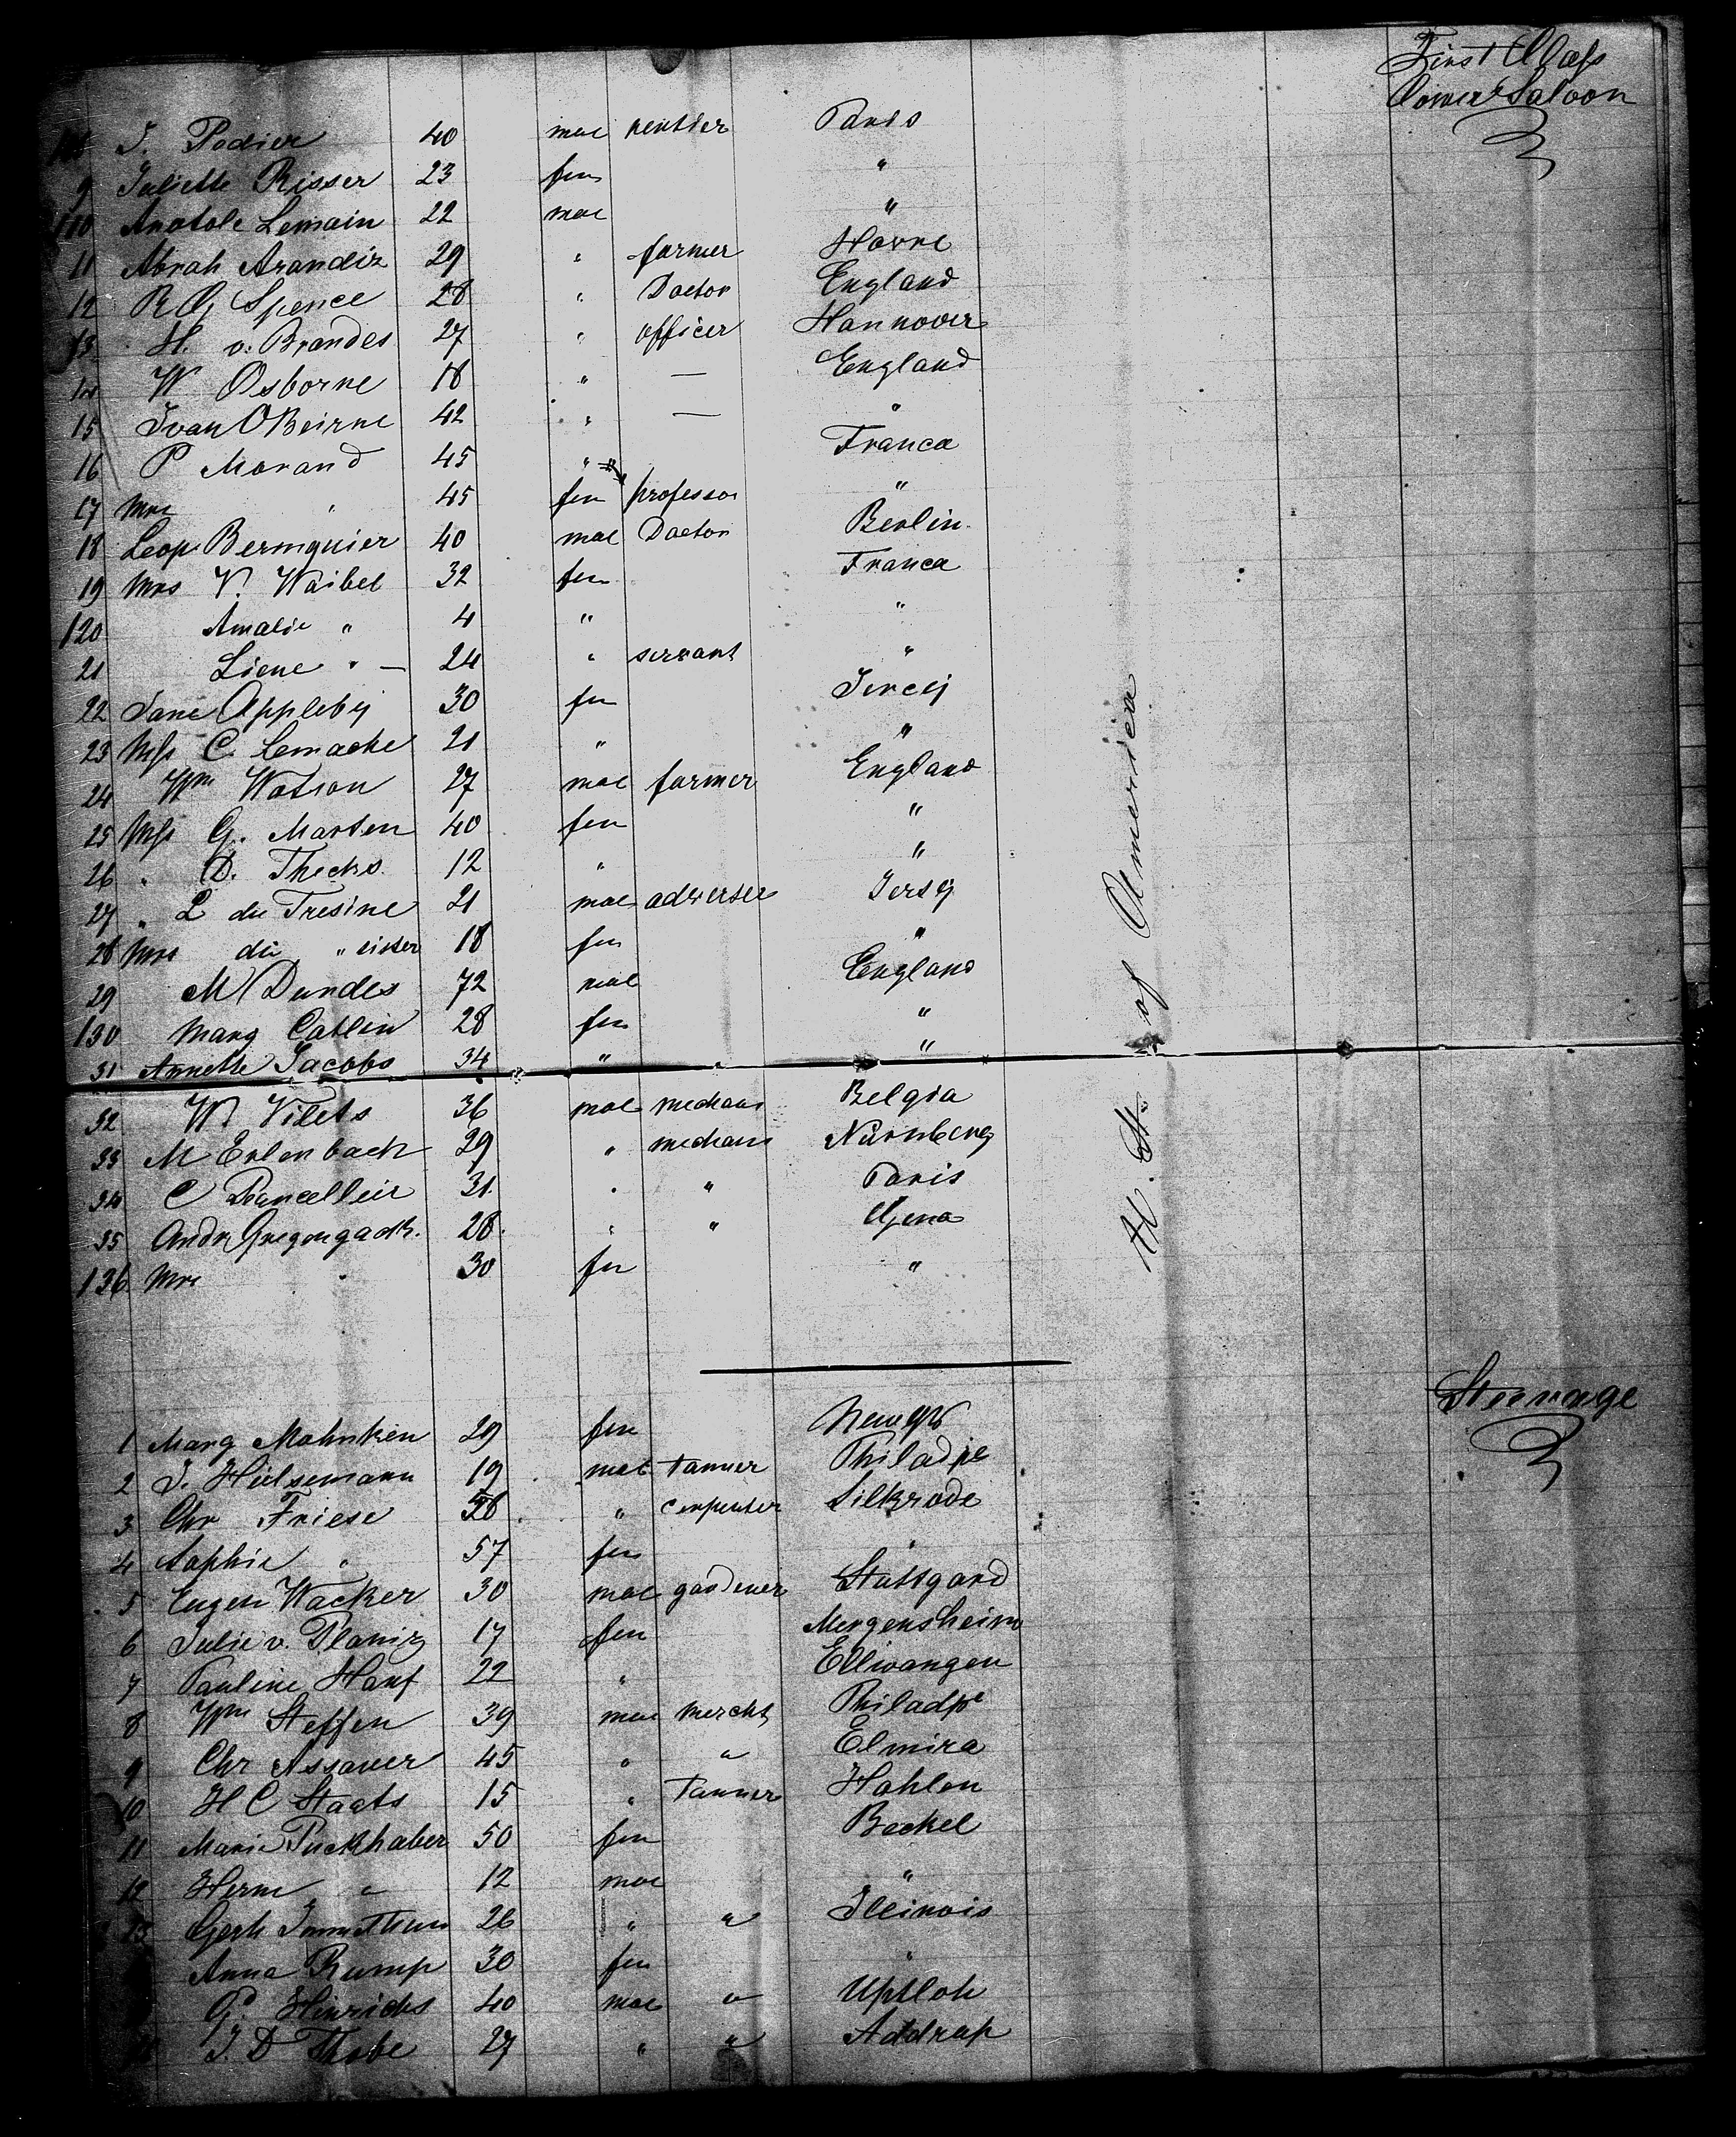 First Class
Lower Saloon
J. Podier 40 mal rentier Paris
9 Juliette Risser 23 fem "
110 Anatole Lemain 22 mal "
11 Abrah Arandiz 29 " farmer Havre
12 R G Spence 28 " Doctor England
13 H. v. Brandes 27 " officer Hannover
14 W Osborne 18 " — England
15 Ivan OBeirne 42 " — "
16 P Morand 45 " France
17 Mrs " 45 fem professor "
18 Leop. Bermquier 40 mal Doctor Berlin
19 Mrs V. Waibel 32 fem France
120 Amalie " 4 " "
21 Liene " — 24 " servant "
22 Jane Appleby 30 fem Jercey
23 Mss C. Lemache 21 " "
24 Wm Watson 27 mal farmer England
25 Mss G. Marten 40 fem "
26 " D. Thecks 12 " "
27 " L du Tresine 21 mal Jersy
28 Mrs du " sister 18 fem "
29 M Dundes 72 mal England
130 Marg Catlin 28 fem "
31 Annette Jacobs 34 " "
32 W. Vilets 36 mal mechani Belgia
33 M Erlenbach 29 " mechani Nürnberg
34 C Rancellier 31 " " Paris
35 Andr 28 " "
136 Mrs " 30 fem "
U. St. of America
Steerage
1 Marg Mahnken 29 fem
2 J. Hülsemann 19 mal Tanner Philadpe
3 Chr Friese 58 " Carpenter Silkrode
4 Sophie " 57 fem "
5 Eugen Wacker 30 mal gardener Stuttgard
6 Julie v. Planiz 17 fem Mergensheim
7 Pauline Hanf 22 " Ellwangen
8 Wm Steffen 39 mal mercht Philadpe
9 Chr Assauer 45 " " Elmira
10 H C Staats 15 " Tanner Hahlen
11 Marie Puckhaber 50 fem Beckel
12 Herm " 12 mal "
13 Gerh 26 " " Illinois
Anna Rump 30 fem "
G. Hinrichs 40 mal " Uptloh
J. D Thobe 27 " " Addrup